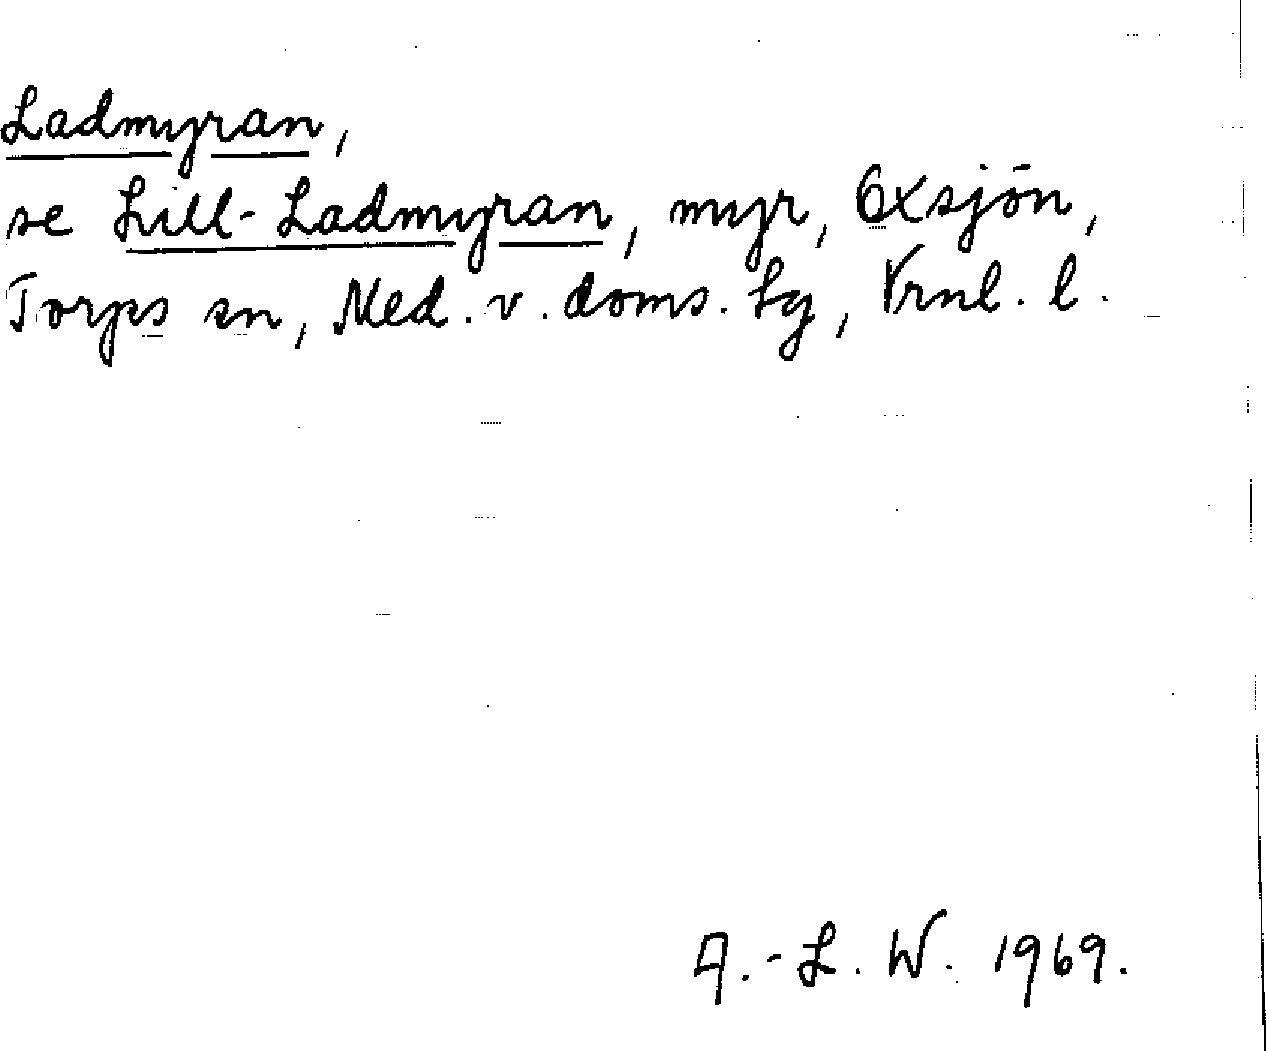 Ladmyran,
se Lill-Ladmyran, myr, Oxsjön,
Torps sn, Med. v. doms. tg, Vrnl. l.
A.-L. W. 1969.